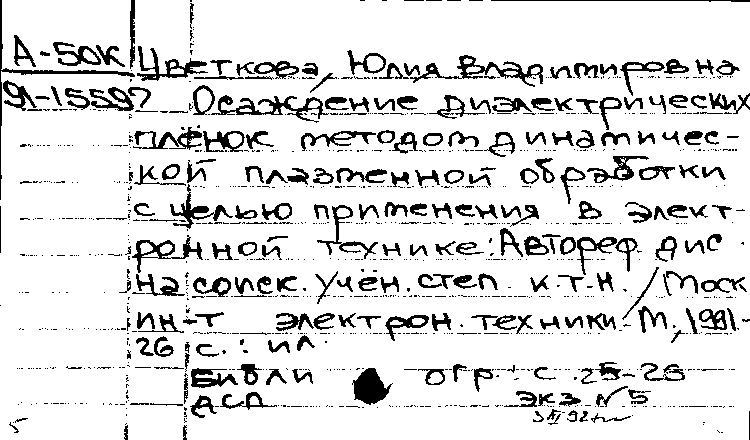 А-50К Цветкова, Юлия Владимировна
91-15597 Осаждение диэлектрических
плёнок методом динамичес-
кой плазменной обработки
с целью применения в элект-
ронной технике: Автореф. дис.
на соиск. учён. степ. к.т.н. / Моск
ин-т электрон. техники.- М., 1991.-
26 с.: ил.
Библиогр.: с. 25-26
ДСП экз N 5